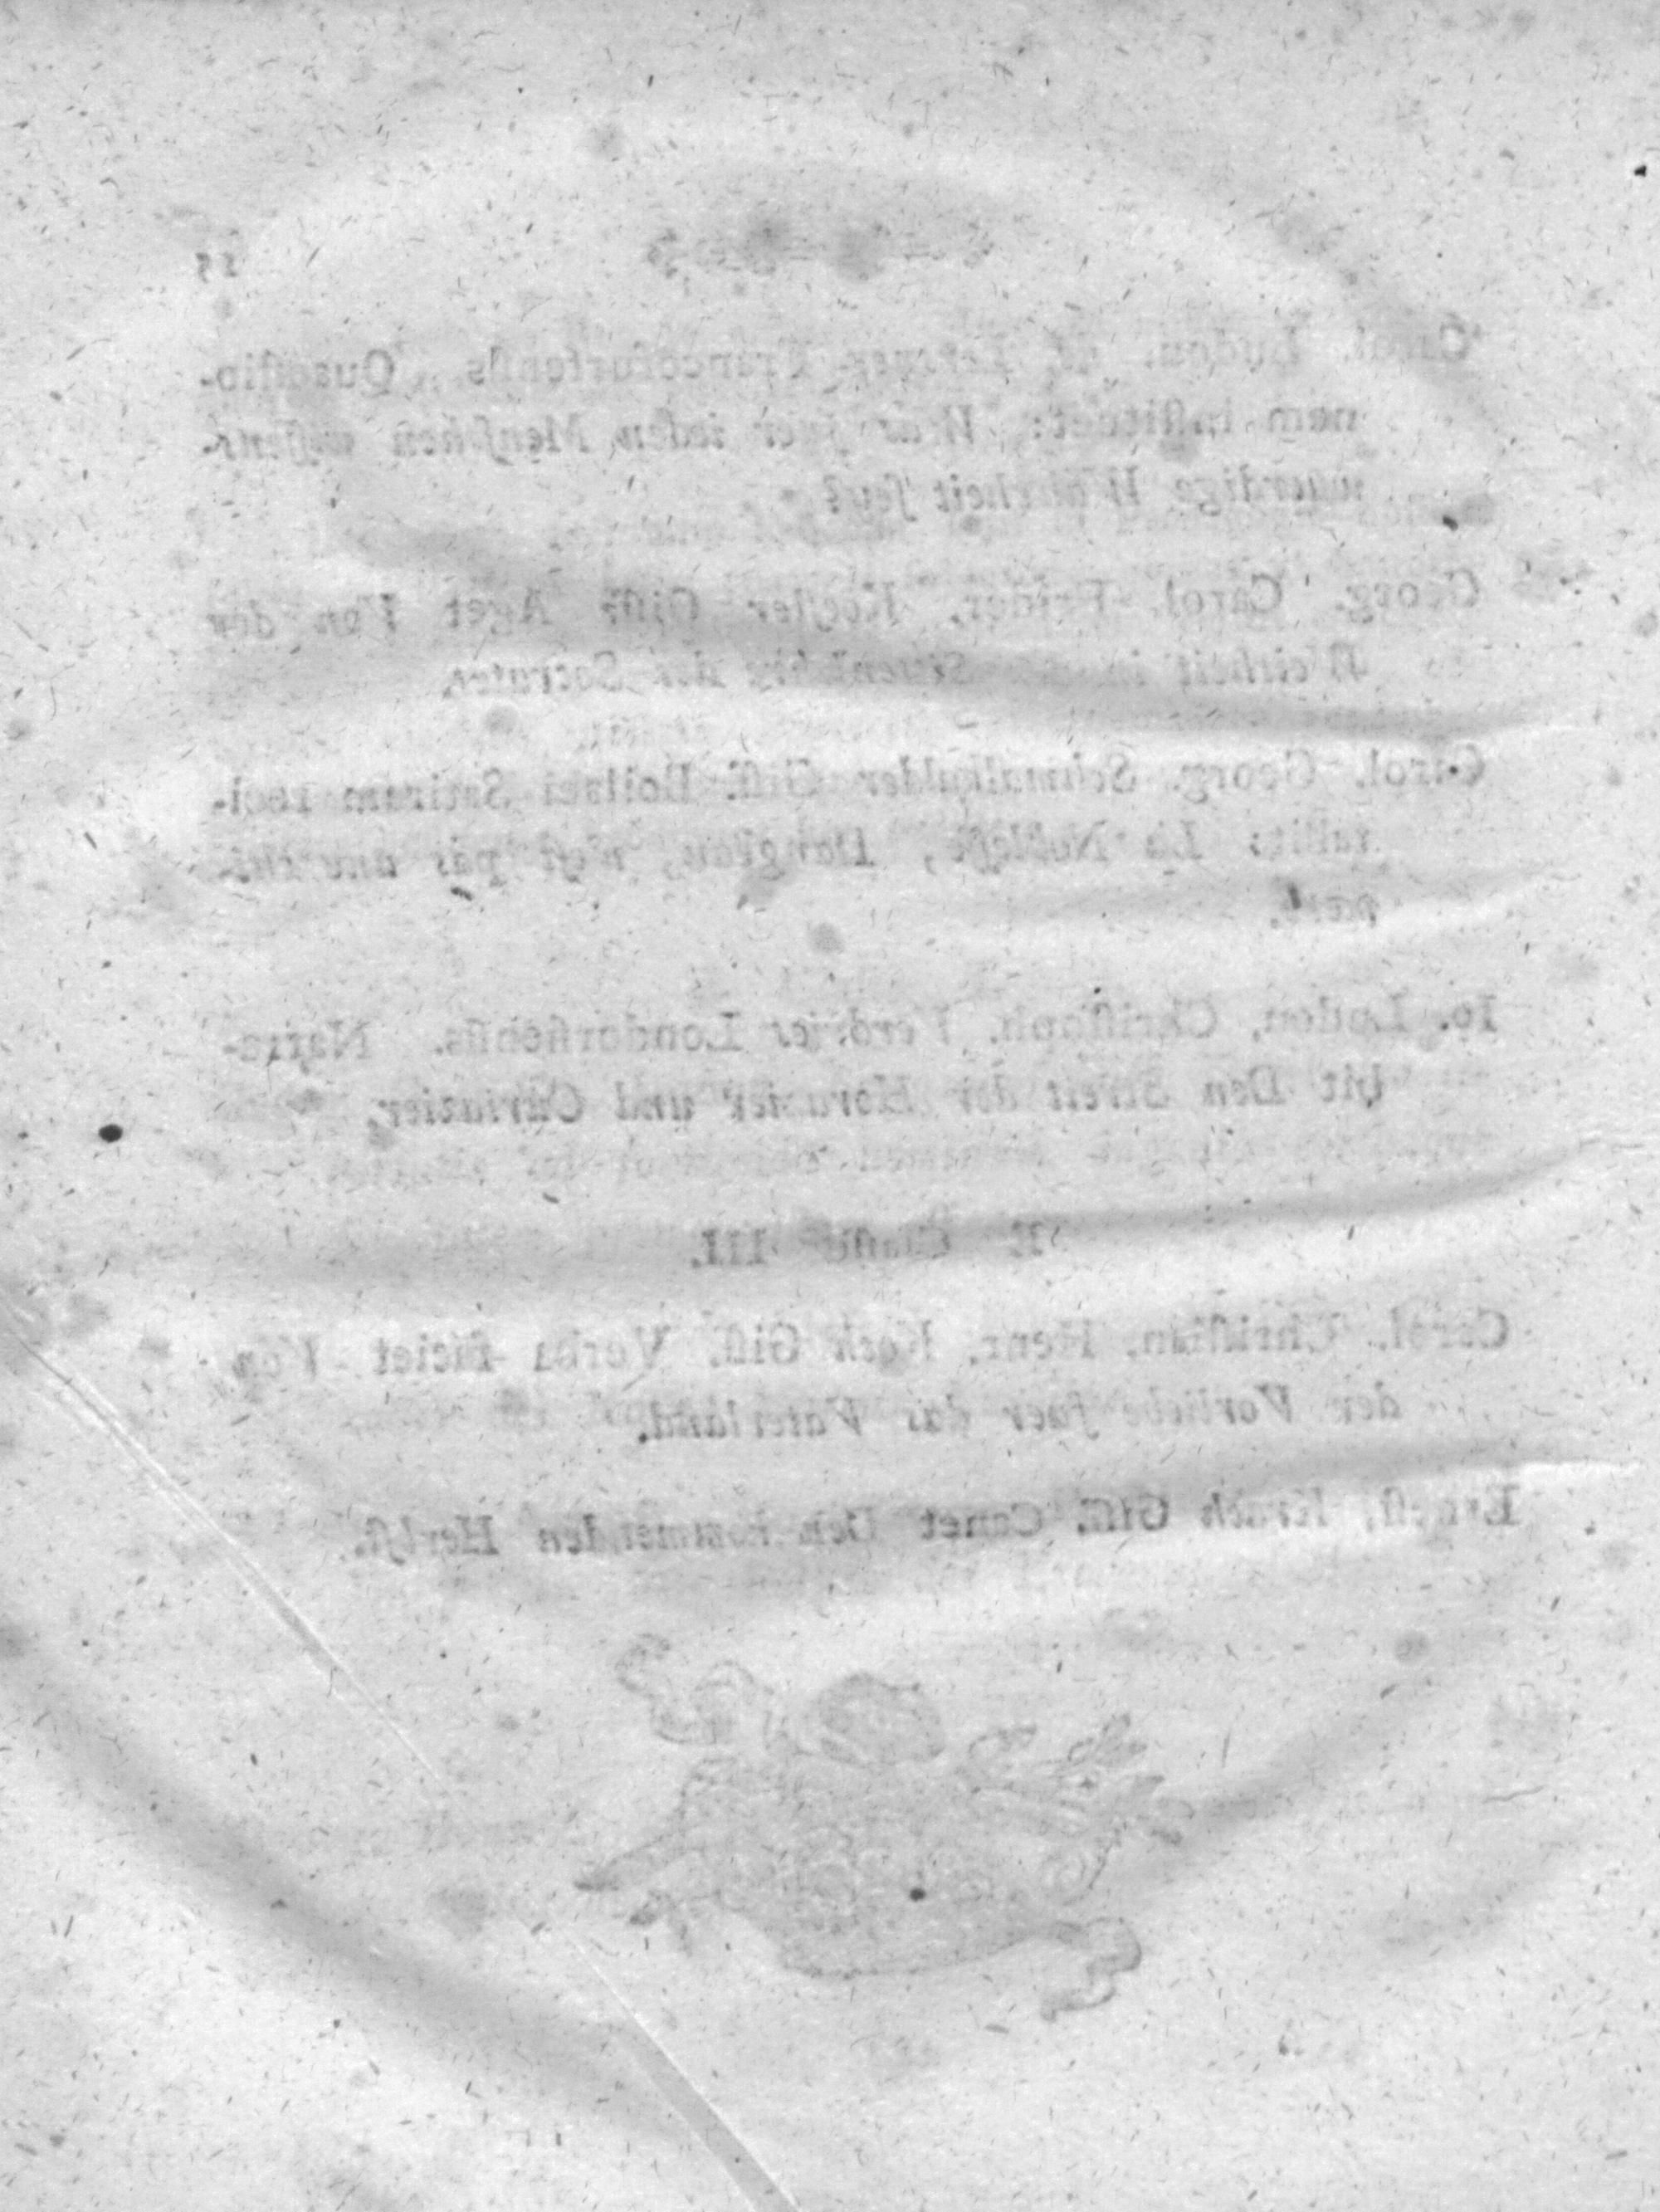 15
Carol. Ludou. Francofurtensis. Quaestio-
nem instituet: Was fuer ieden Menschen wissens-
wuerdige Wahrheit sey?
Georg. Carol. Frider. Koester Giss. Aget Von der
Weisheit in der Sittenlehre des Socrates.
Carol. Georg. Schmalkalder Giss. Boilaei Satiram reci-
tabit: La Noblesse, Dangeau, n'est pas une chi-
mere.
Io. Ludou. Christoph. Verdries Londorfiensis. Narra-
bit Den Streit der Horazier und Curiazier.
E Classe III.
Carol. Christian. Henr. Koch Giss. Verba faciet Von
der Vorliebe fuer das Vaterland.
Ernest. Krach Giss. Canet Den kommenden Herbst.